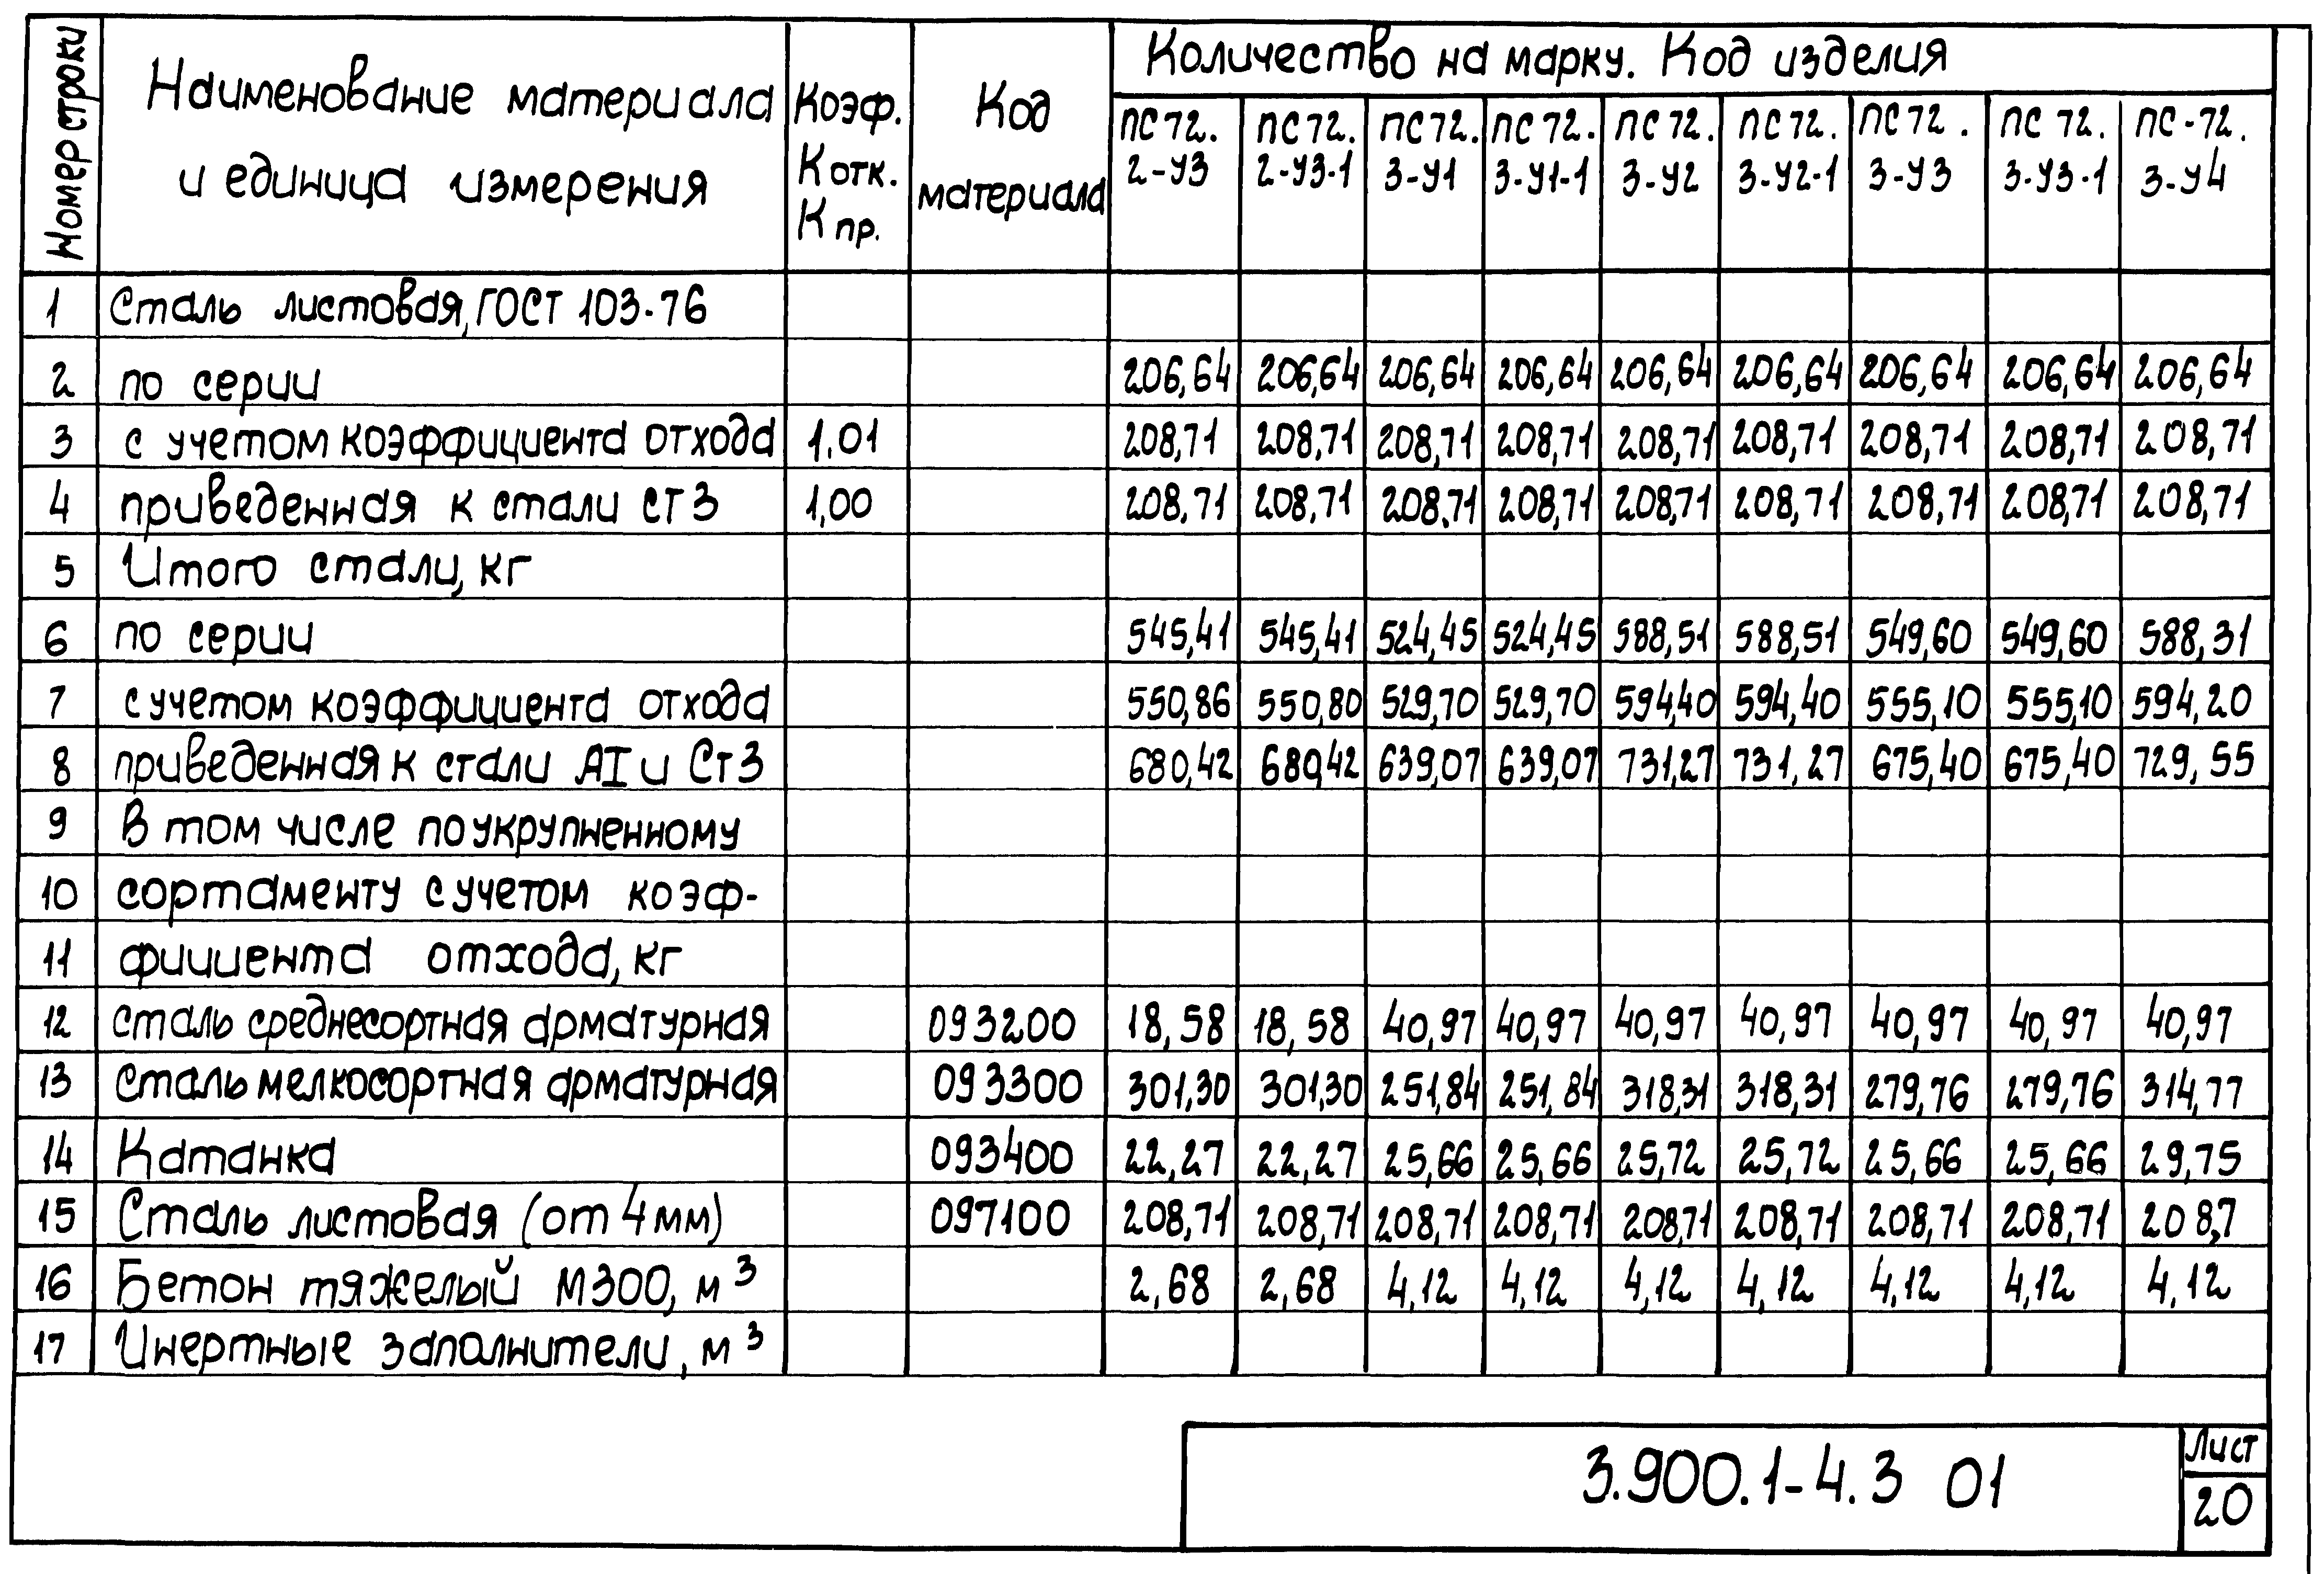 Номер строки
Наименование материала
и единица измерения
Коэф.
Котк.
Кпр.
Код
материала
Количество на марку. Код изделия
ПС72. ПС72. ПС72. ПС72. ПС72. ПС72. ПС72. ПС72. ПС-72.
2-У3 2-У3-1 3-У1 3-У1-1 3-У2 3-У2-1 3-У3 3-У3-1 3-У4
1 Сталь листовая, ГОСТ 103-76
2 по серии 206,64 206,64 206,64 206,64 206,64 206,64 206,64 206,64 206,64
3 с учетом коэффициента отхода 1.01 208,71 208,71 208,71 208,71 208,71 208,71 208,71 208,71 208,71
4 приведенная к стали ст3 1,00 208,71 208,71 208,71 208,71 208,71 208,71 208,71 208,71 208,71
5 Итого стали, кг
6 по серии 545,41 545,41 524,45 524,45 588,51 588,51 549,60 549,60 588,31
7 с учетом коэффициента отхода 550,86 550,80 529,70 529,70 594,40 594,40 555,10 555,10 594,20
8 приведенная к стали АI и Ст3 680,42 680,42 639,07 639,07 731,27 731,27 675,40 675,40 729,55
9 В том числе по укрупненному
10 сортаменту с учетом коэф-
11 фициента отхода, кг
12 сталь среднесортная арматурная 093200 18,58 18,58 40,97 40,97 40,97 40,97 40,97 40,97 40,97
13 сталь мелкосортная арматурная 093300 301,30 301,30 251,84 251,84 318,31 318,31 279,76 279,76 314,77
14 Катанка 093400 22,27 22,27 25,66 25,66 25,72 25,72 25,66 25,66 29,75
15 Сталь листовая (от 4мм) 097100 208,71 208,71 208,71 208,71 208,71 208,71 208,71 208,71 208,7
16 Бетон тяжелый М300, м³ 2,68 2,68 4,12 4,12 4,12 4,12 4,12 4,12 4,12
17 Инертные заполнители, м³
3.900.1-4.3 01
Лист
20